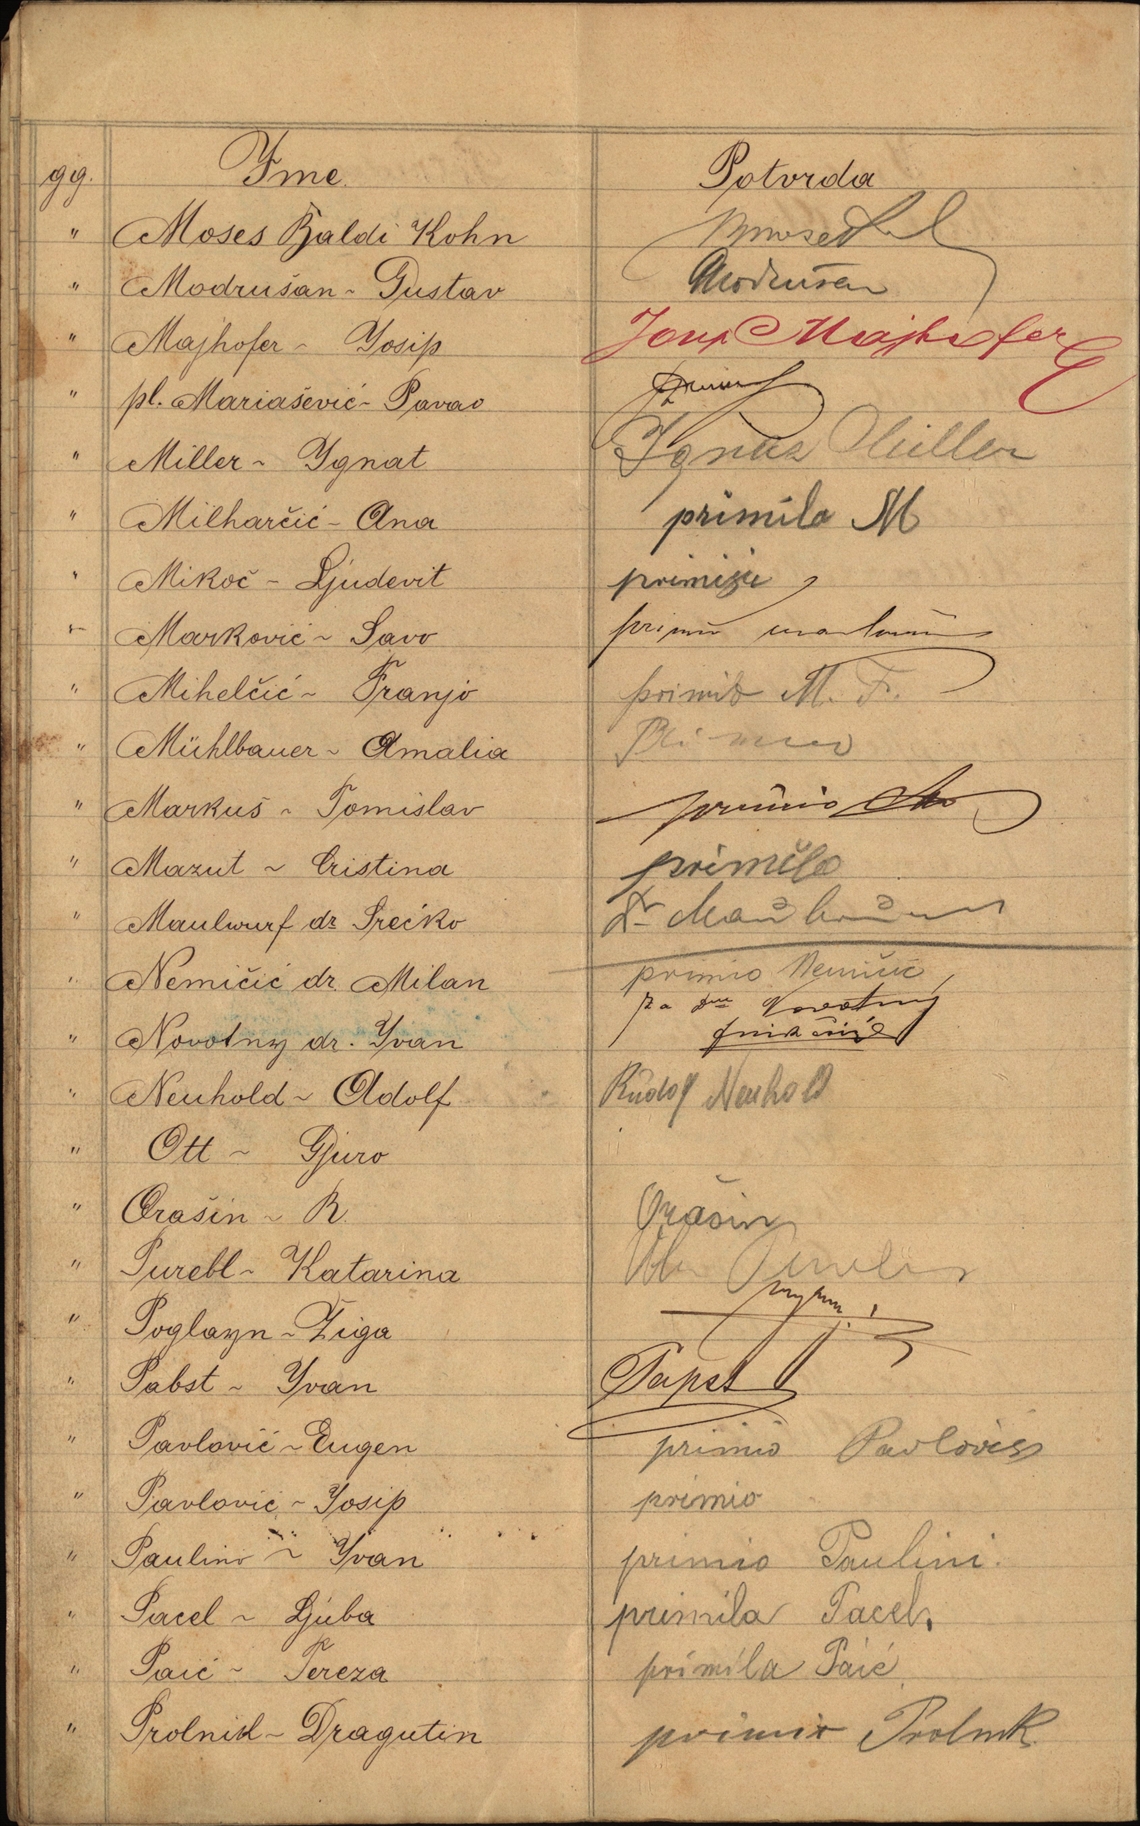 gg. Ime. Potvrda
" Moses Baldi Kohn
" Modrušan ~ Gustav Modrušan
" Majhofer ~ Josip Josip Majhofer
" pl. Mariašević ~ Pavao
" Miller ~ Ignat Ignaz Miller
" Milharčić ~ Ana primila M
" Mikoč ~ Ljudevit
" Marković ~ Savo primio
" Mihelčić ~ Franjo primio M. F.
" Mühlbauer ~ Amalia
" Markuš ~ Tomislav primio
" Mazut ~ Cristina primila
" Maulwurf dr Srećko Dr
" Nemičić dr. Milan primio Nemičić
" Novotny dr. Ivan za Novotny
" Neuhold ~ Adolf Rudolf Neuhold
" Ott ~ Gjuro
" Orašin ~ R. Orašin
" Purebl ~ Katarina
" Poglayn ~ Žiga
" Pabst ~ Ivan Papst
" Pavlović ~ Eugen primio Pavlović
" Pavlović ~ Josip primio
" Paulino ~ Ivan primio Paulini.
" Pacel ~ Ljuba primila Pacel.
" Paić ~ Tereza primila Paić
" Prolnik ~ Dragutin primio Prolnik